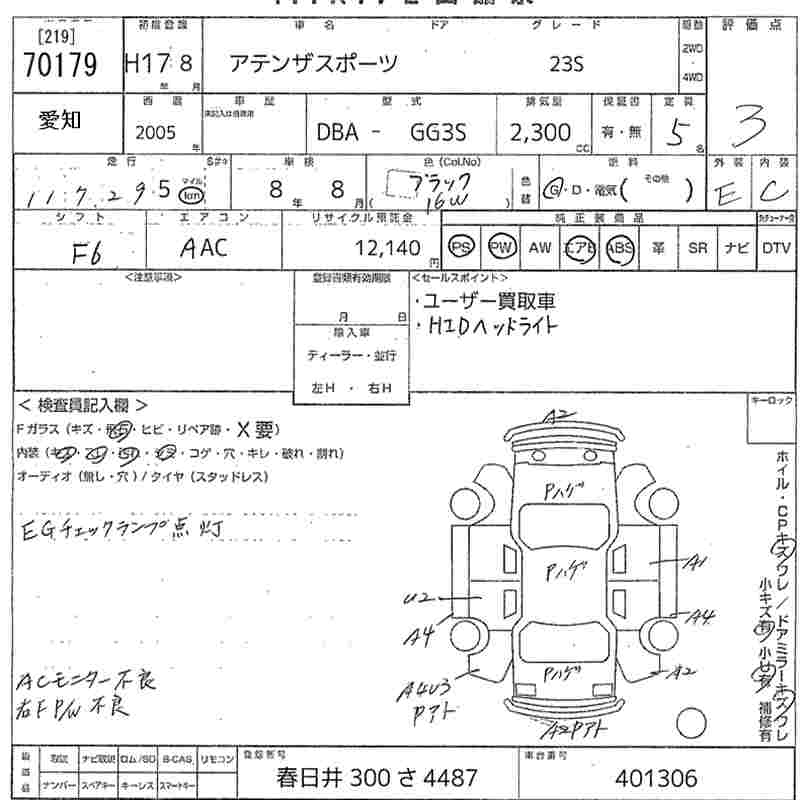 [219] 初度登録 車名 ドア グレード 駆動 評価点
70179 H17 8 アテンザスポーツ 23S 2WD 4WD
年 月
愛知 西暦 車歴 型式 排気量 保証書 定員 3
2005 年 DBA - GG3S 2,300 CC 有・無 5 名
走行 車検 色(Col.No) 色替 燃料 外装 内装
117,295 マイル km 8 年 8 月 ( ブラック 16W ) G・D・電気( その他 ) E C
シフト エアコン リサイクル預託金 純正装備品
F6 AAC 12,140 円 PS PW AW エアB ABS 革 SR ナビ DTV
<注意事項> 登録書類有効期限 <セールスポイント>
月 日 ・ユーザー買取車
輸入車 ・HIDヘッドライト
ディーラー・並行
左H ・ 右H
< 検査員記入欄 > キーロック
Fガラス(キズ・飛石・ヒビ・リペア跡・X要) A2
内装(キズ・スレ・汚れ・シミ・コゲ・穴・キレ・破れ・割れ)
オーディオ(無し・穴)/タイヤ(スタッドレス)
Pハゲ
EGチェックランプ点灯
Pハゲ A1
U2
A4 A4
ACモニター不良 Pハゲ A2
右F P/W 不良 A4U3
Pアト
A2Pアト
ホイル・CPキズワレ/ドアミラーキズワレ
小キズ有 小U有 補修有
取説 ナビ取説 ロム/SD B-CAS リモコン 登録番号 車台番号
ナンバー スペアキー キーレス スマートキー 春日井 300 さ 4487 401306